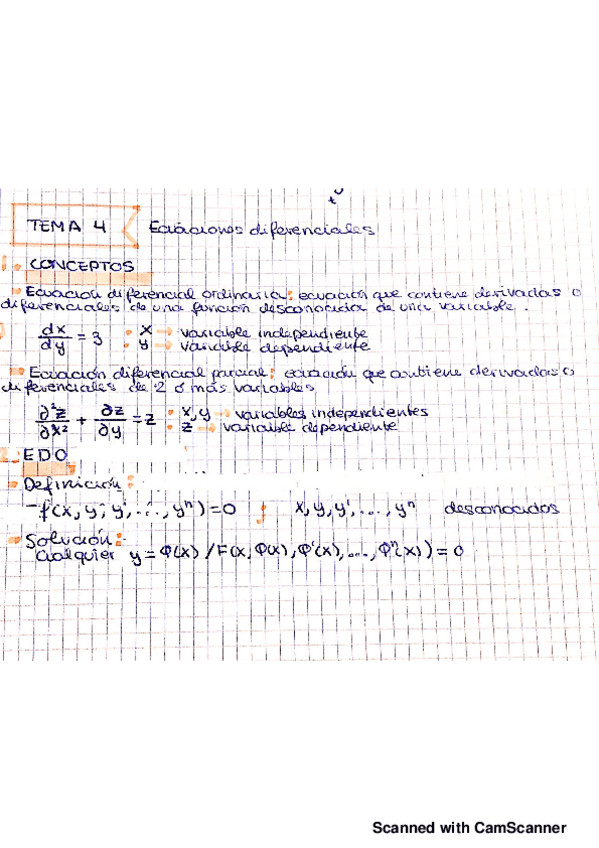 TEMA 4 Ecuaciones diferenciales
1. CONCEPTOS
Ecuación diferencial ordinaria: ecuación que contiene derivadas o
diferenciales de una función desconocida de una variable.
dx/dy = 3 · x → variable independiente
· y → variable dependiente
Ecuación diferencial parcial: ecuación que contiene derivadas o
diferenciales de 2 ó más variables
∂²z/∂x² + ∂z/∂y = z · x,y → variables independientes
· z → variable dependiente
2. EDO
Definición:
f(x, y, y', ..., yⁿ) = 0 ; x, y, y', ..., yⁿ desconocidos
Solución:
Cualquier y = φ(x) / F(x, φ(x), φ'(x), ..., φⁿ(x)) = 0
Scanned with CamScanner